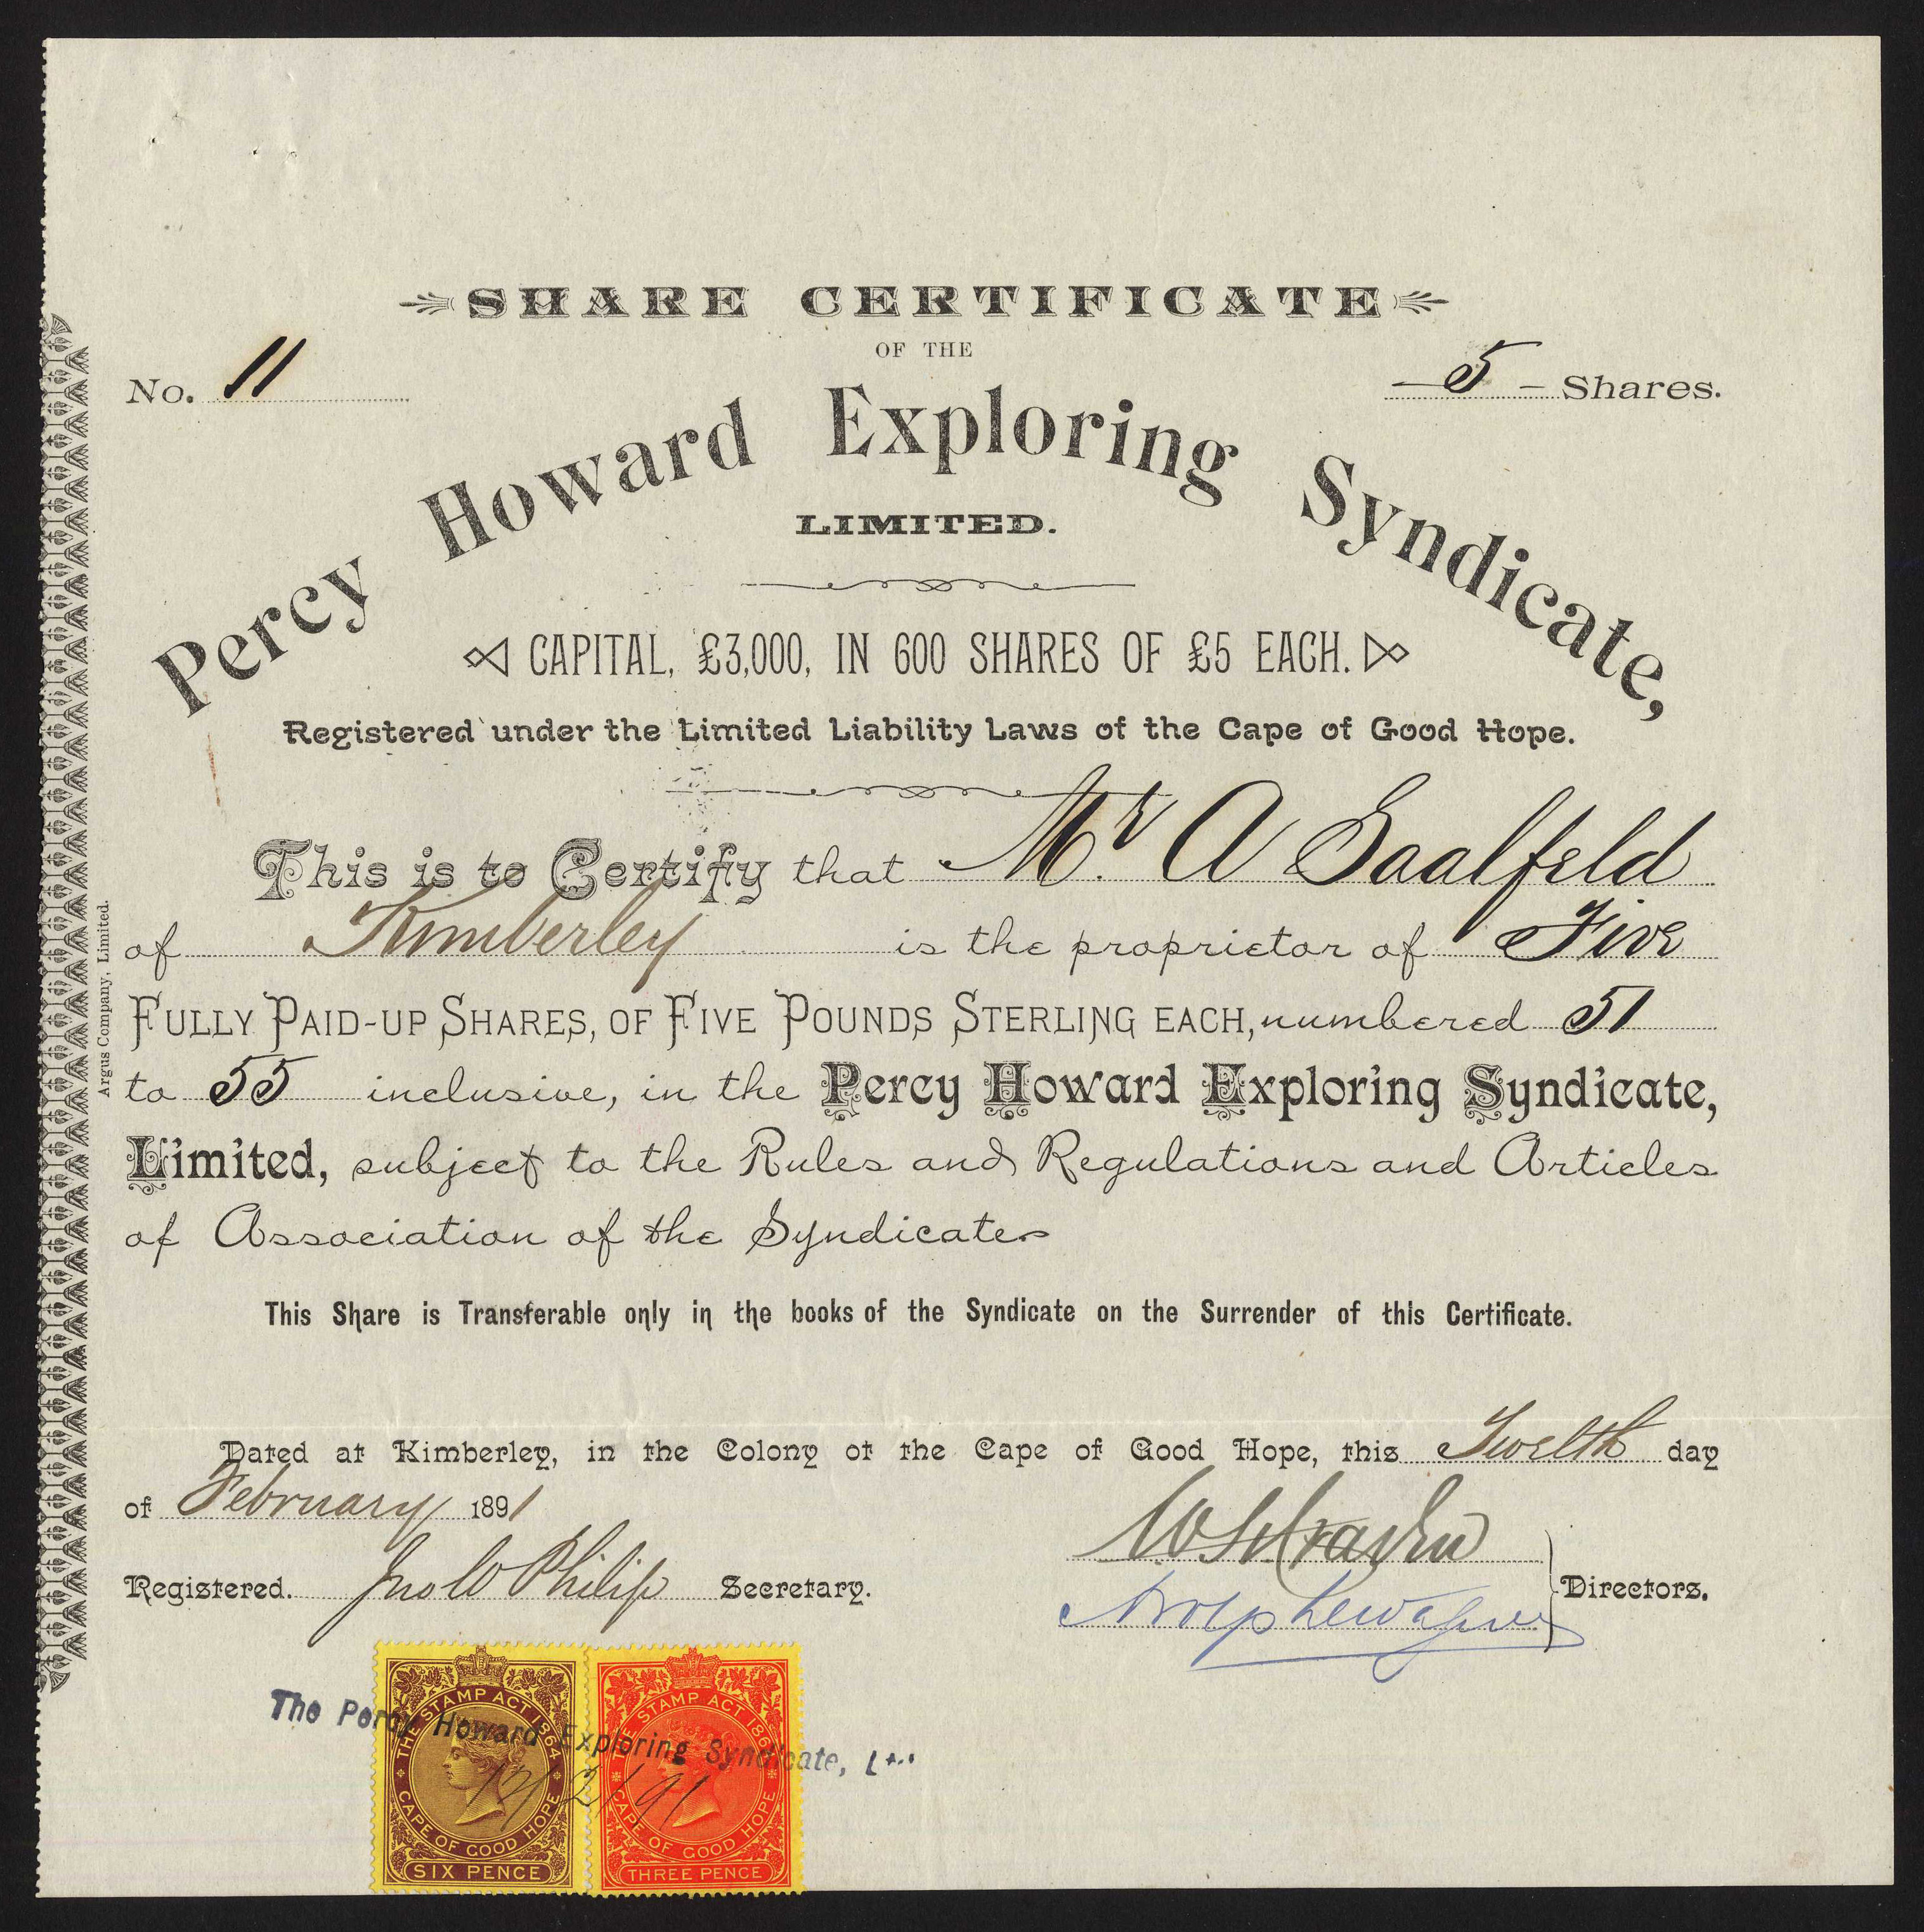 SHARE CERTIFICATE
OF THE
No. 11
5 Shares.
Percy Howard Exploring Syndicate,
LIMITED.
CAPITAL, £3,000, IN 600 SHARES OF £5 EACH.
Registered under the Limited Liability Laws of the Cape of Good Hope.
This is to Certify that Mr. A Saalfeld
of Kimberley is the proprietor of Five
FULLY PAID-UP SHARES, OF FIVE POUNDS STERLING EACH, numbered 51
to 55 inclusive, in the Percy Howard Exploring Syndicate,
Limited, subject to the Rules and Regulations and Articles
of Association of the Syndicate.
This Share is Transferable only in the books of the Syndicate on the Surrender of this Certificate.
Dated at Kimberley, in the Colony of the Cape of Good Hope, this Twelth day
of February 1891
Registered. Jno W Philip Secretary.
Directors.
Argus Company, Limited.
The Percy Howard Exploring Syndicate, Ltd.
12/2/91
THE STAMP ACT 1864
CAPE OF GOOD HOPE
SIX PENCE
THE STAMP ACT 1864
CAPE OF GOOD HOPE
THREE PENCE